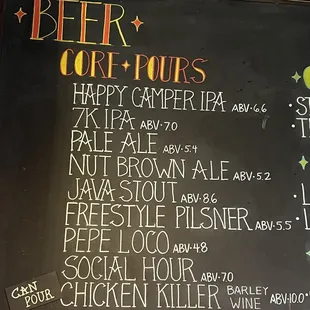 BEER
CORE POURS
HAPPY CAMPER IPA ABV·6.6
7K IPA ABV·7.0
PALE ALE ABV·5.4
NUT BROWN ALE ABV·5.2
JAVA STOUT ABV·8.6
FREESTYLE PILSNER ABV·5.5
PEPE LOCO ABV·4.8
SOCIAL HOUR ABV·7.0
CHICKEN KILLER BARLEY WINE ABV·10.0
CAN POUR